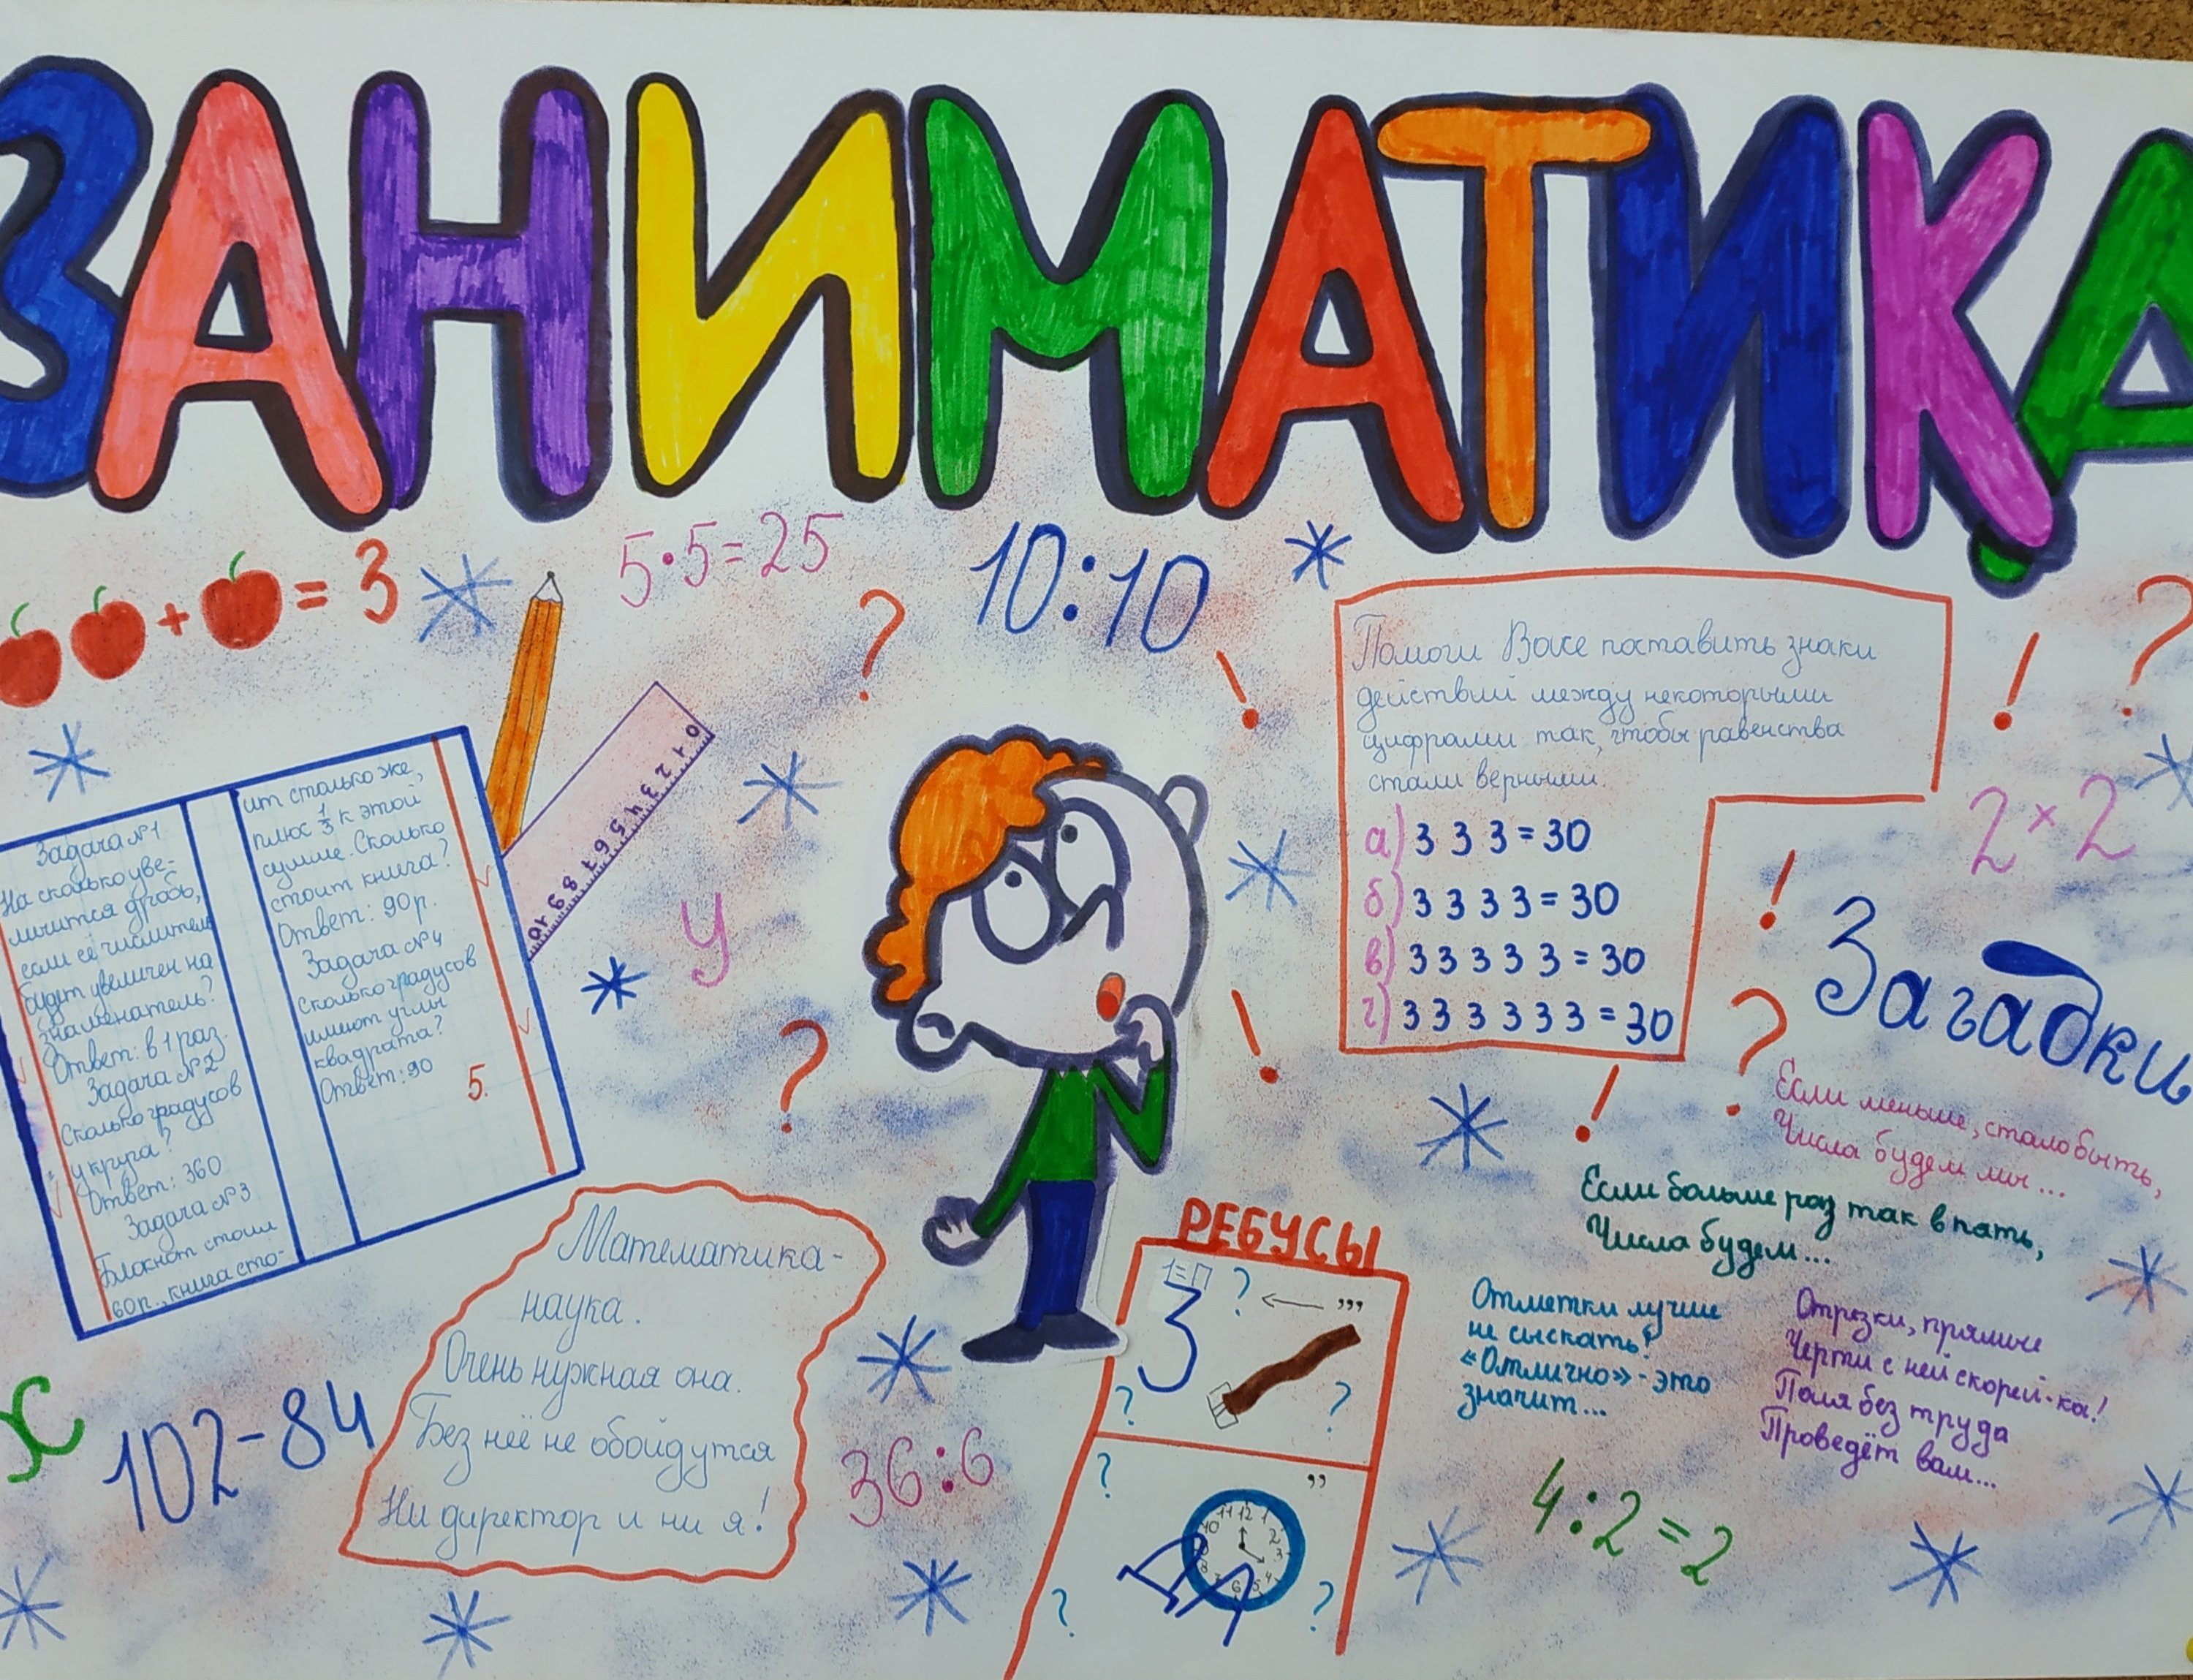 ЗАНИМАТИКА
= 3
5·5=25
10:10
Задача №1
На сколько уве-
личится дробь,
если её числитель
будет увеличен на
знаменатель?
Ответ: в 1 раз.
Задача №2
Сколько градусов
у круга?
Ответ: 360
Задача №3
Блокнот стоил
60р., книга сто-
ит столько же,
плюс 1/3 к этой
сумме. Сколько
стоит книга?
Ответ: 90р.
Задача №4
Сколько градусов
имеют углы
квадрата?
Ответ: 90
5.
0 1 2 3 4 5 6 7 8 9 10
у
Помоги Васе поставить знаки
действий между некоторыми
цифрами так, чтобы равенства
стали верными.
а) 3 3 3 = 30
б) 3 3 3 3 = 30
в) 3 3 3 3 3 = 30
г) 3 3 3 3 3 3 = 30
2×2
Загадки
Если меньше, стало быть,
Числа будем мы...
Если больше раз так в пать,
Числа будем...
Отметки лучше
не сыскать!
«Отлично» - это
значит...
Отрезки, прямые
Черти с ней скорей-ка!
Поля без труда
Проведёт вам...
4:2=2
Математика-
наука.
Очень нужная она.
Без неё не обойдутся
Ни директор и ни я!
х
102-84
36:6
РЕБУСЫ
1=П
? ← ,,,
3
? ?
? ,,
11 12 1
10 2
3
8 4
7 6 5
? ?